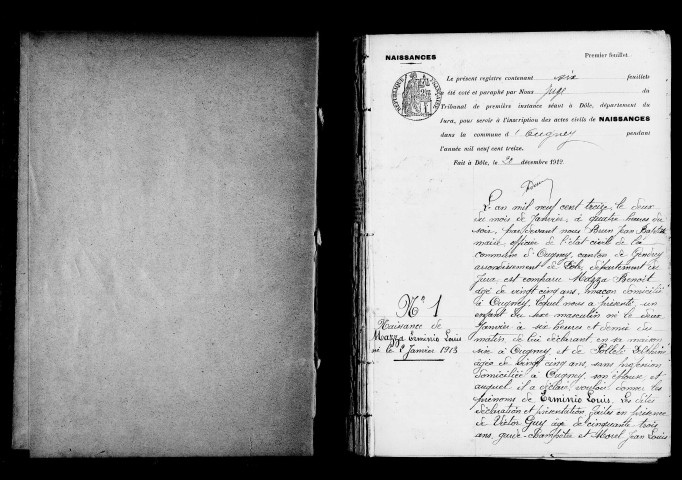 NAISSANCES
Premier feuillet.
Le présent registre contenant six feuillets
été coté et paraphé par Nous Juge du
Tribunal de première instance séant à Dôle, département du
Jura, pour servir à l'inscription des actes civils de NAISSANCES
dans la commune d'Ougney pendant
l'année mil neuf cent treize.
Fait à Dôle, le décembre 1912.
RÉPUBLIQUE FRANÇAISE
L'an mil neuf cent treize, le deux
du mois de Janvier, à quatre heures du
soir, par devant nous Brun Jean Baptiste
maire, officier de l'état civil de la
commune de Ougney, canton de Gendrey
arrondissement de Dôle, département du
Jura est comparu Mazza Benoit
âgé de vingt cinq ans, maçon domicilié
à Ougney, lequel nous a présenté un
enfant du sexe masculin né le deux
Janvier à six heures et demie du
matin de lui déclarant, en sa maison
sise à Ougney et de
âgée de vingt cinq ans, sans profession
domiciliée à Ougney, son épouse et
auquel il a déclaré vouloir donner les
prénoms de Erminio Louis. Les dites
déclaration et présentation faites en présence
de Victor Guy âgé de cinquante trois
ans, garde-champêtre et Morel Jean Louis
N° 1
Naissance de
Mazza Erminio Louis
né le 2 Janvier 1913